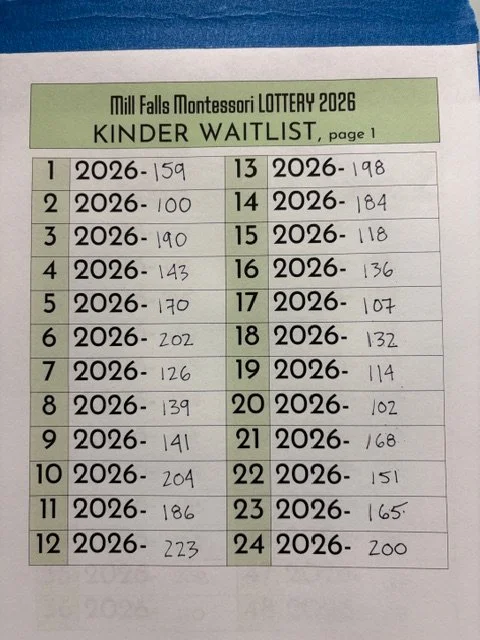 Mill Falls Montessori LOTTERY 2026
KINDER WAITLIST, page 1
1 2026-159 13 2026-198
2 2026-100 14 2026-184
3 2026-190 15 2026-118
4 2026-143 16 2026-136
5 2026-170 17 2026-107
6 2026-202 18 2026-132
7 2026-126 19 2026-114
8 2026-139 20 2026-102
9 2026-141 21 2026-168
10 2026-204 22 2026-151
11 2026-186 23 2026-165
12 2026-223 24 2026-200